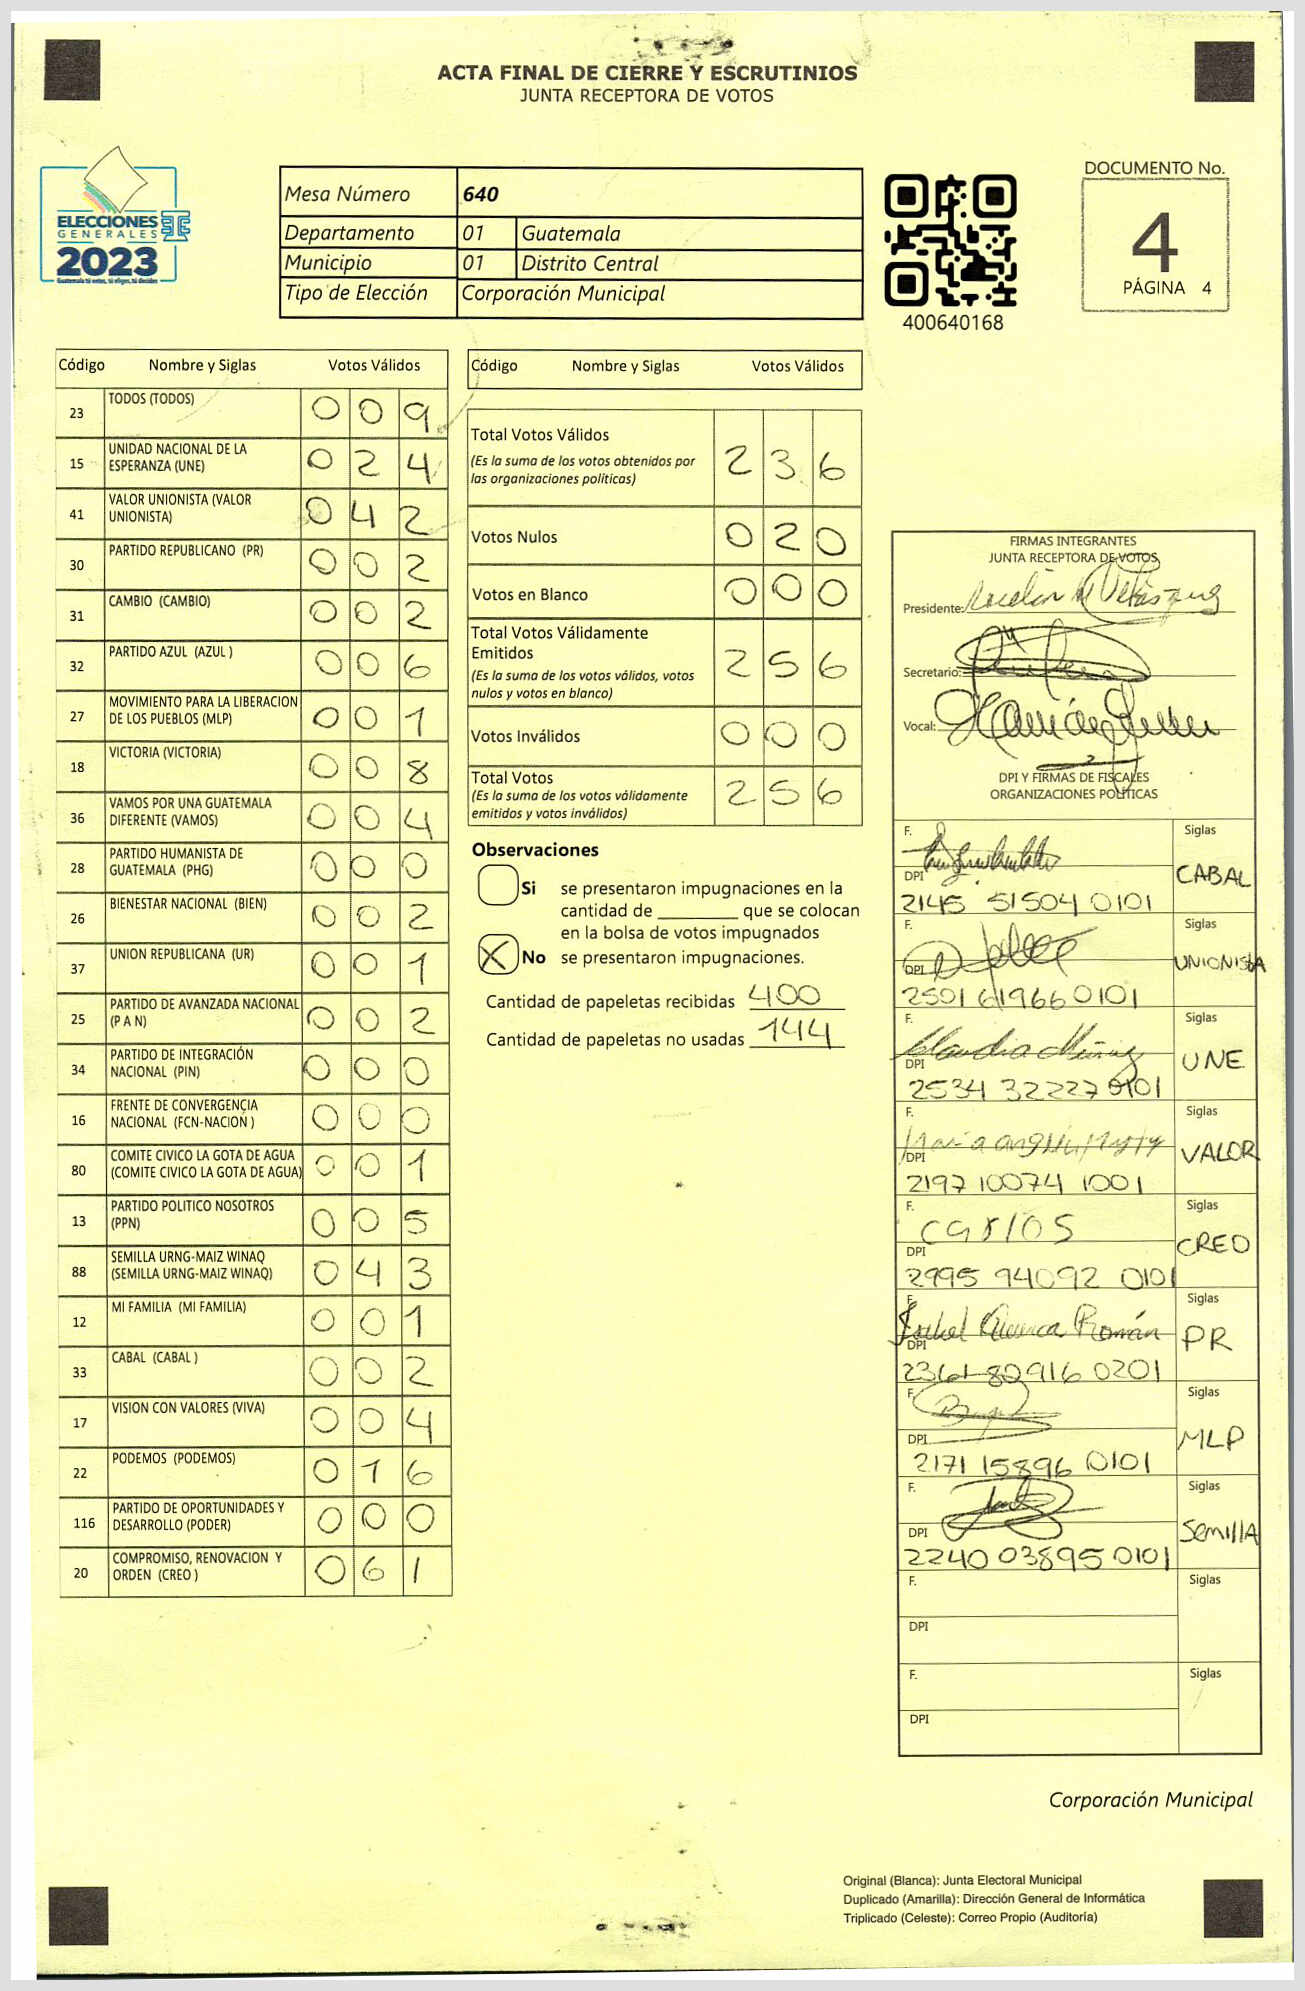 ACTA FINAL DE CIERRE Y ESCRUTINIOS
JUNTA RECEPTORA DE VOTOS
ELECCIONES
GENERALES
2023
Guatemala tú votas, tú eliges, tú decides
TSE
Mesa Número 640
Departamento 01 Guatemala
Municipio 01 Distrito Central
Tipo de Elección Corporación Municipal
400640168
DOCUMENTO No.
4
PÁGINA 4
Código Nombre y Siglas Votos Válidos
23 TODOS (TODOS) 0 0 9
15 UNIDAD NACIONAL DE LA
ESPERANZA (UNE) 0 2 4
41 VALOR UNIONISTA (VALOR
UNIONISTA) 0 4 2
30 PARTIDO REPUBLICANO (PR) 0 0 2
31 CAMBIO (CAMBIO) 0 0 2
32 PARTIDO AZUL (AZUL ) 0 0 6
27 MOVIMIENTO PARA LA LIBERACION
DE LOS PUEBLOS (MLP) 0 0 1
18 VICTORIA (VICTORIA) 0 0 8
36 VAMOS POR UNA GUATEMALA
DIFERENTE (VAMOS) 0 0 4
28 PARTIDO HUMANISTA DE
GUATEMALA (PHG) 0 0 0
26 BIENESTAR NACIONAL (BIEN) 0 0 2
37 UNION REPUBLICANA (UR) 0 0 1
25 PARTIDO DE AVANZADA NACIONAL
(P A N) 0 0 2
34 PARTIDO DE INTEGRACIÓN
NACIONAL (PIN) 0 0 0
16 FRENTE DE CONVERGENCIA
NACIONAL (FCN-NACION ) 0 0 0
80 COMITE CIVICO LA GOTA DE AGUA
(COMITE CIVICO LA GOTA DE AGUA) 0 0 1
13 PARTIDO POLITICO NOSOTROS
(PPN) 0 0 5
88 SEMILLA URNG-MAIZ WINAQ
(SEMILLA URNG-MAIZ WINAQ) 0 4 3
12 MI FAMILIA (MI FAMILIA) 0 0 1
33 CABAL (CABAL ) 0 0 2
17 VISION CON VALORES (VIVA) 0 0 4
22 PODEMOS (PODEMOS) 0 1 6
116 PARTIDO DE OPORTUNIDADES Y
DESARROLLO (PODER) 0 0 0
20 COMPROMISO, RENOVACION Y
ORDEN (CREO ) 0 6 1
Código Nombre y Siglas Votos Válidos
Total Votos Válidos 2 3 6
(Es la suma de los votos obtenidos por
las organizaciones politicas)
Votos Nulos 0 2 0
Votos en Blanco 0 0 0
Total Votos Válidamente
Emitidos 2 5 6
(Es la suma de los votos válidos, votos
nulos y votos en blanco)
Votos Inválidos 0 0 0
Total Votos 2 5 6
(Es la suma de los votos válidamente
emitidos y votos inválidos)
Observaciones
Si se presentaron impugnaciones en la
cantidad de ________ que se colocan
en la bolsa de votos impugnados
X No se presentaron impugnaciones.
Cantidad de papeletas recibidas 400
Cantidad de papeletas no usadas 144
FIRMAS INTEGRANTES
JUNTA RECEPTORA DE VOTOS
Presidente:
Secretario:
Vocal:
DPI Y FIRMAS DE FISCALES
ORGANIZACIONES POLÍTICAS
F. Siglas
DPI CABAL
2145 51504 0101
F. Siglas
DPI UNIONISTA
2501 61966 0101
F. Claudia Muñoz Siglas
DPI UNE
2534 32227 0101
F. Siglas
DPI VALOR
2197 10074 1001
F. Carlos Siglas
DPI CREO
2995 94092 0101
F. Isabel Cuenca Román Siglas
DPI PR
2361 80916 0201
F. Siglas
DPI MLP
2171 15896 0101
F. Siglas
DPI SEMILLA
2240 03895 0101
F. Siglas
DPI
F. Siglas
DPI
Corporación Municipal
Original (Blanca): Junta Electoral Municipal
Duplicado (Amarilla): Dirección General de Informática
Triplicado (Celeste): Correo Propio (Auditoría)